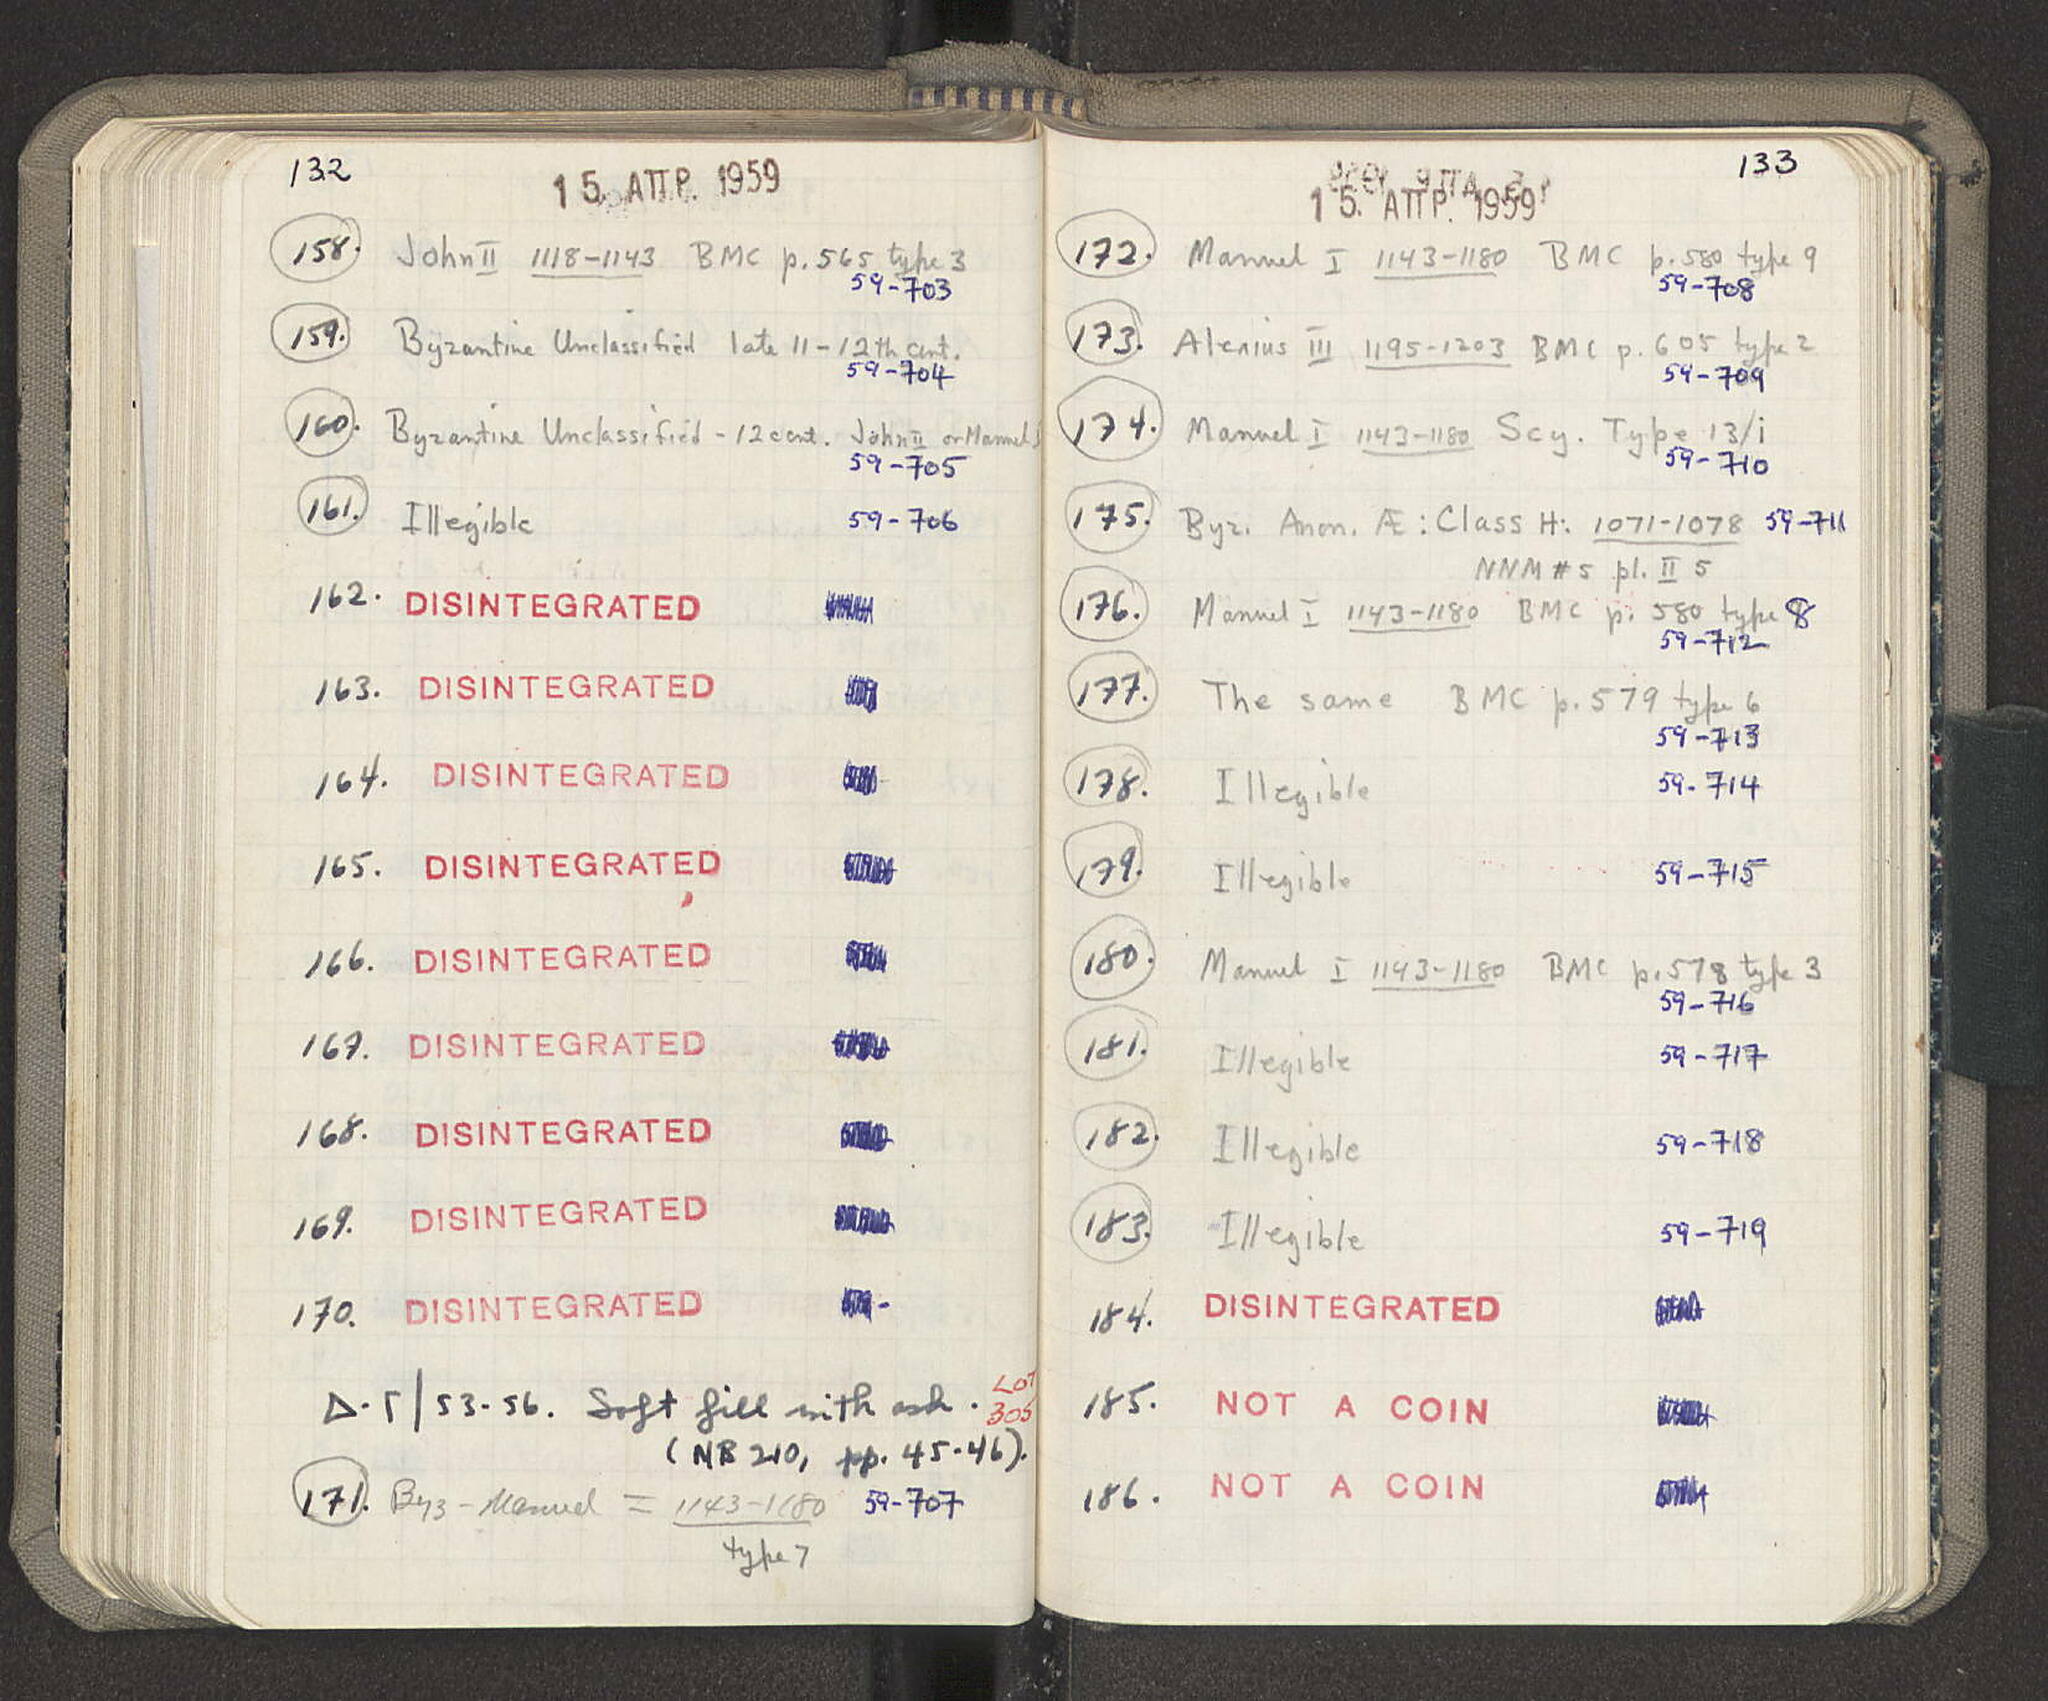 132
15. ΑΠΡ. 1959
158. John II 1118-1143 BMC p. 565 type 3
59-703
159. Byzantine Unclassified late 11-12th cent.
59-704
160. Byzantine Unclassified - 12 cent. John II or Manuel I
59-705
161. Illegible 59-706
162. DISINTEGRATED
163. DISINTEGRATED
164. DISINTEGRATED
165. DISINTEGRATED
166. DISINTEGRATED
167. DISINTEGRATED
168. DISINTEGRATED
169. DISINTEGRATED
170. DISINTEGRATED
Δ-Γ/53-56. Soft fill with ash. LOT 305
(NB 210, pp. 45-46).
171. Byz - Manuel = 1143-1180 59-707
type 7
133
15. ΑΠΡ. 1959
172. Manuel I 1143-1180 BMC p. 580 type 9
59-708
173. Alexius III 1195-1203 BMC p. 605 type 2
59-709
174. Manuel I 1143-1180 Scy. Type 13/i
59-710
175. Byz. Anon. Æ: Class H: 1071-1078 59-711
NNM #5 pl. II 5
176. Manuel I 1143-1180 BMC p. 580 type 8
59-712
177. The same BMC p. 579 type 6
59-713
178. Illegible 59-714
179. Illegible 59-715
180. Manuel I 1143-1180 BMC p. 578 type 3
59-716
181. Illegible 59-717
182. Illegible 59-718
183. Illegible 59-719
184. DISINTEGRATED
185. NOT A COIN
186. NOT A COIN